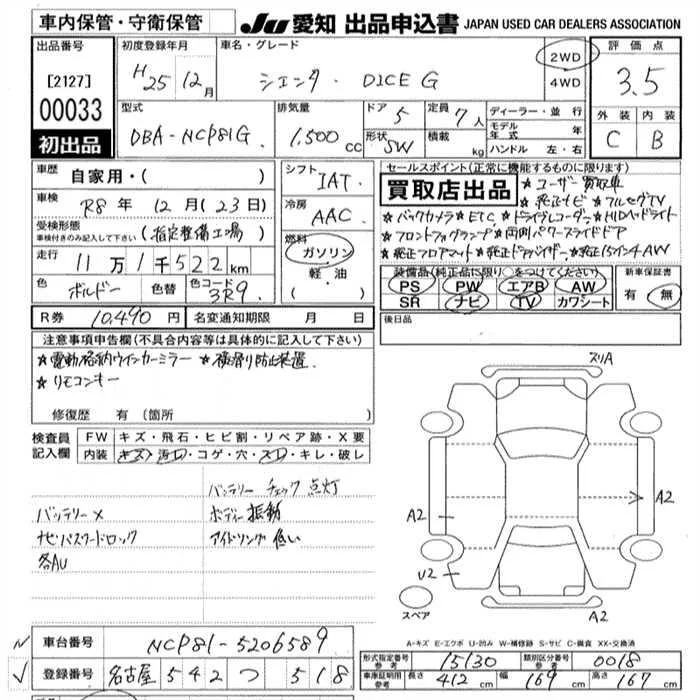 車内保管・守衛保管
JU 愛知 出品申込書 JAPAN USED CAR DEALERS ASSOCIATION
出品番号
[2127]
00033
初出品
初度登録年月
H25 12月
車名・グレード
シエンタ・DICE G
2WD
4WD
評価点
3.5
外装 内装
C B
型式
DBA-NCP81G
排気量
1,500 cc
ドア 5
形状 SW
定員 7人
積載 kg
ディーラー・並行
モデル年式 年
ハンドル 左・右
車歴
自家用・( )
車検
R8年 12月(23日)
受検形態
車検付きのみ記入して下さい
(指定整備工場)
走行
11万1千522km
色
ボルドー
色替
色コード
3R9
シフト
IAT
冷房
AAC
燃料
ガソリン
軽・油
( )
セールスポイント(正常に機能するものに限ります)
買取店出品
★ユーザー買取車
★純正ナビ★フルセグTV
★バックカメラ★ETC★ドライブレコーダー★HIDヘッドライト
★フロントフォグランプ★両側パワースライドドア
★純正フロアマット★純正ドアバイザー★純正15インチAW
装備品(純正品に限り○をつけてください)
PS PW エアB AW
SR ナビ TV カワシート
新車保証書
有・無
R券 10,490円
名変通知期限 月 日
後日品
注意事項申告欄(不具合内容等は具体的に記入して下さい)
★電動格納ウインカーミラー★横滑り防止装置
★リモコンキー
修復歴 有(箇所
検査員記入欄
FW キズ・飛石・ヒビ割・リペア跡・X要
内装 キズ・汚れ・コゲ・穴・スレ・キレ・破レ
バッテリーチェック点灯
バッテリー×
ボディー振動
ナビパスワードロック
アイドリング低い
各AU
スリA
A2
A2
U2
A2
スペア
A-キズ E-エクボ U-凹み W-補修跡 S-サビ C-腐食 XX-交換済
車台番号 NCP81-5206589
登録番号 名古屋 542 つ 518
形式指定番号
参考
15130
類別区分番号
参考
0018
車庫証明用
参考
長さ 412cm 幅 169cm 高さ 167cm